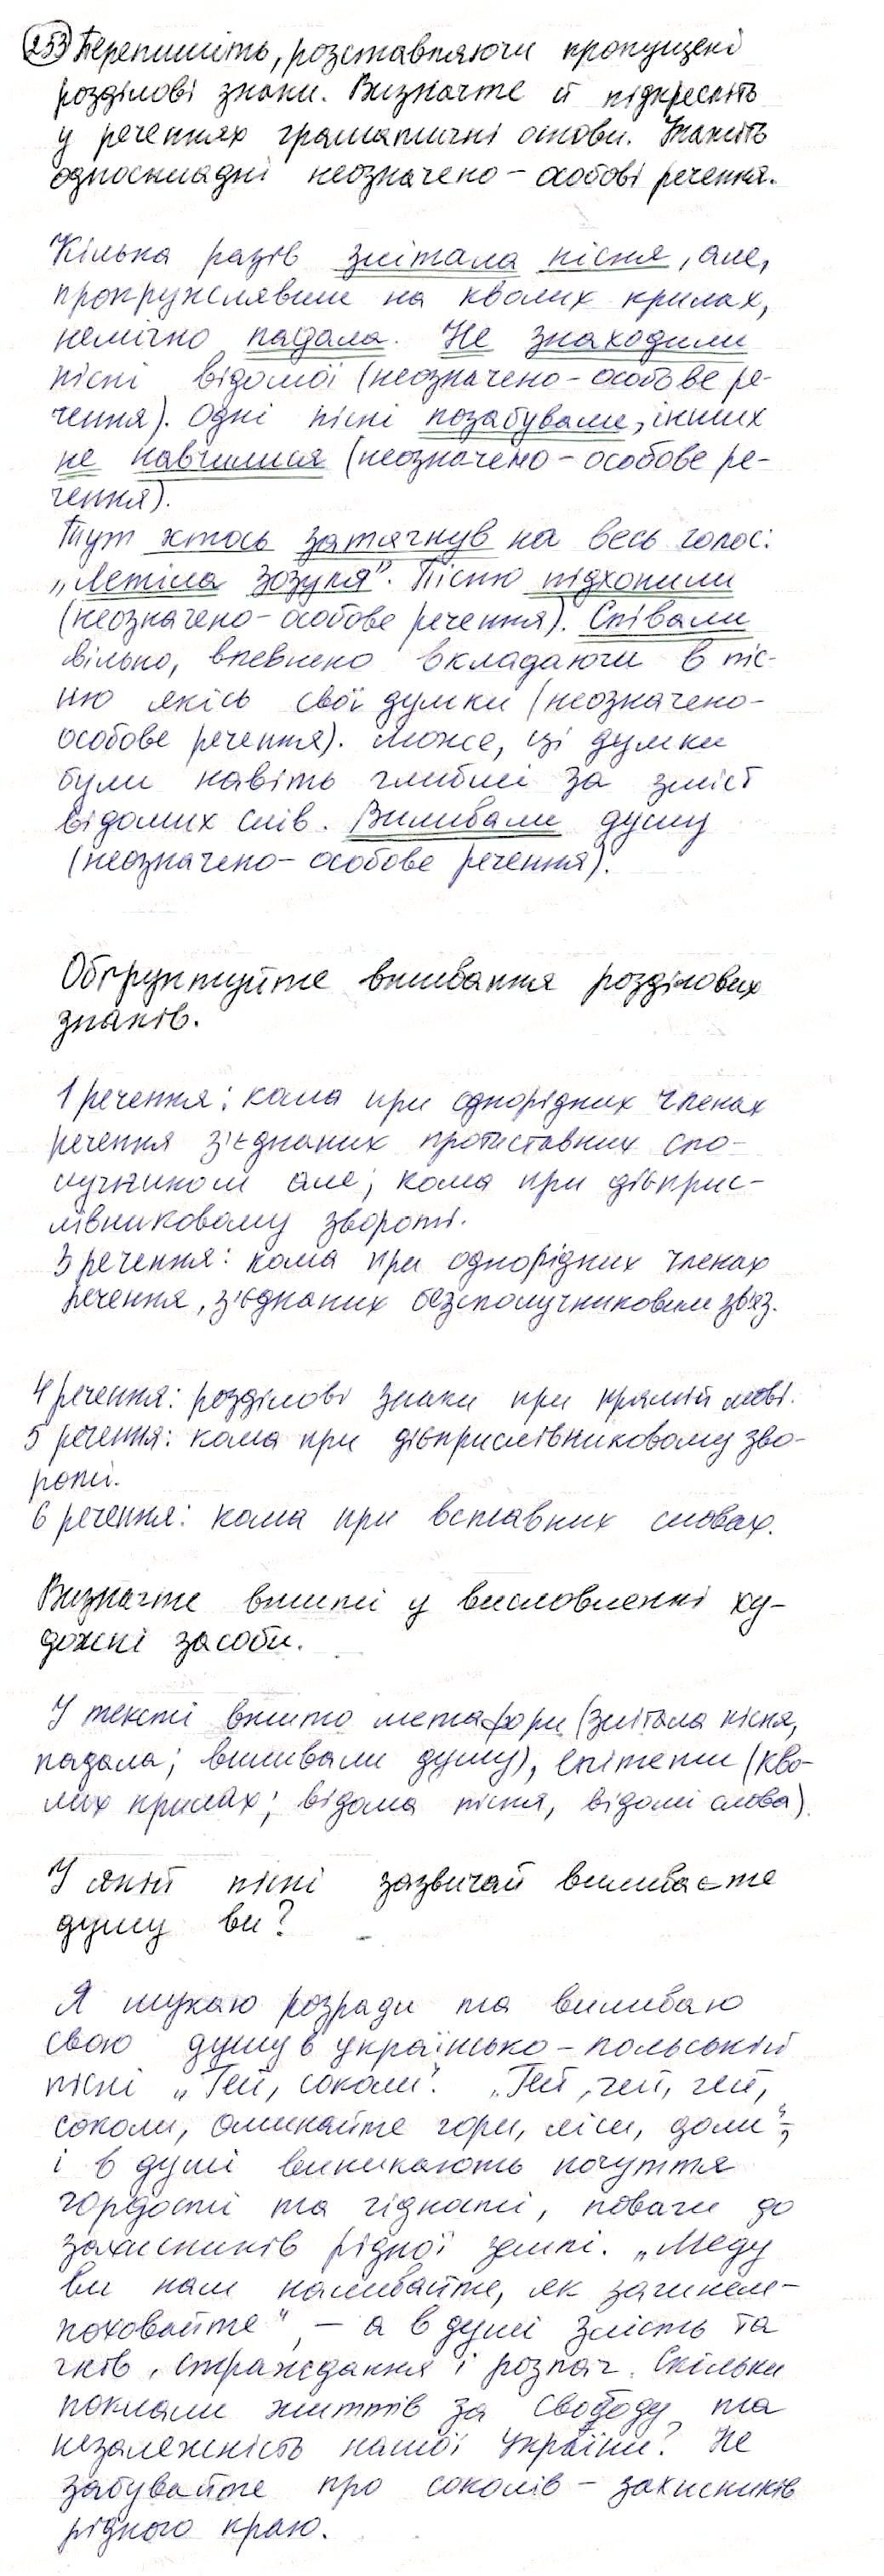 253 Перепишіть, розставляючи пропущені
розділові знаки. Визначте й підкресліть
у реченнях граматичні основи. Укажіть
односкладні неозначено-особові речення.
Кілька разів злітала пісня, але,
прокружлявши на кволих крилах,
немічно падала. Не знаходили
пісні відомої (неозначено-особове ре-
чення). Одні пісні позабували, інших
не навчилися (неозначено-особове ре-
чення).
Тут хтось затягнув на весь голос:
„Летіла зозуля". Пісню підхопили
(неозначено-особове речення). Співали
вільно, впевнено вкладаючи в піс-
ню якісь свої думки (неозначено-
особове речення). Може, ці думки
були навіть глибші за зміст
відомих слів. Виливали душу
(неозначено-особове речення).
Обґрунтуйте вживання розділових
знаків.
1 речення: кома при однорідних членах
речення з'єднаних протиставних спо-
лучником але; кома при дієприс-
лівниковому звороті.
3 речення: кома при однорідних членах
речення, з'єднаних безсполучниковим зв'яз.
4 речення: розділові знаки при прямій мові.
5 речення: кома при дієприслівниковому зво-
роті.
6 речення: кома при вставних словах.
Визначте вжиті у висловленні ху-
дожні засоби.
У тексті вжито метафори (злітала пісня,
падала; виливали душу), епітети (кво-
лих крилах; відома пісня, відомі слова).
У якій пісні зазвичай виливаєте
душу ви?
Я шукаю розради та виливаю
свою душу в українсько-польській
пісні „Гей, соколи". „Гей, гей, гей,
соколи, оминайте гори, ліси, доли",
і в душі виникають почуття
гордості та гідності, поваги до
захисників рідної землі. „Меду
ви нам наливайте, як загинем-
поховайте", - а в душі злість та
гнів, страждання і розпач. Скільки
поклали життів за свободу та
незалежність нашої України? Не
забувайте про соколів - захисників
рідного краю.